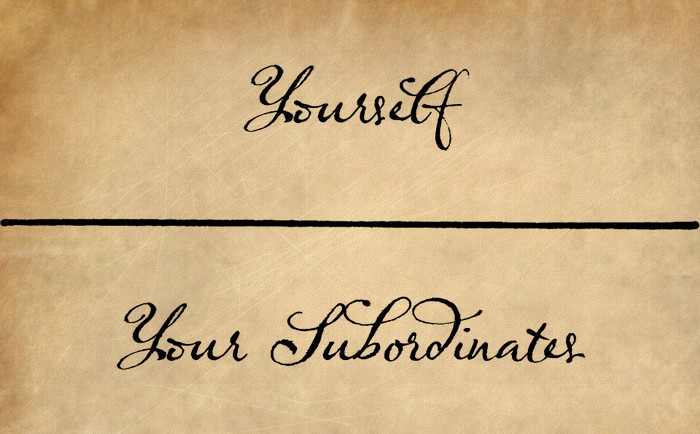 Yourself
Your Subordinates